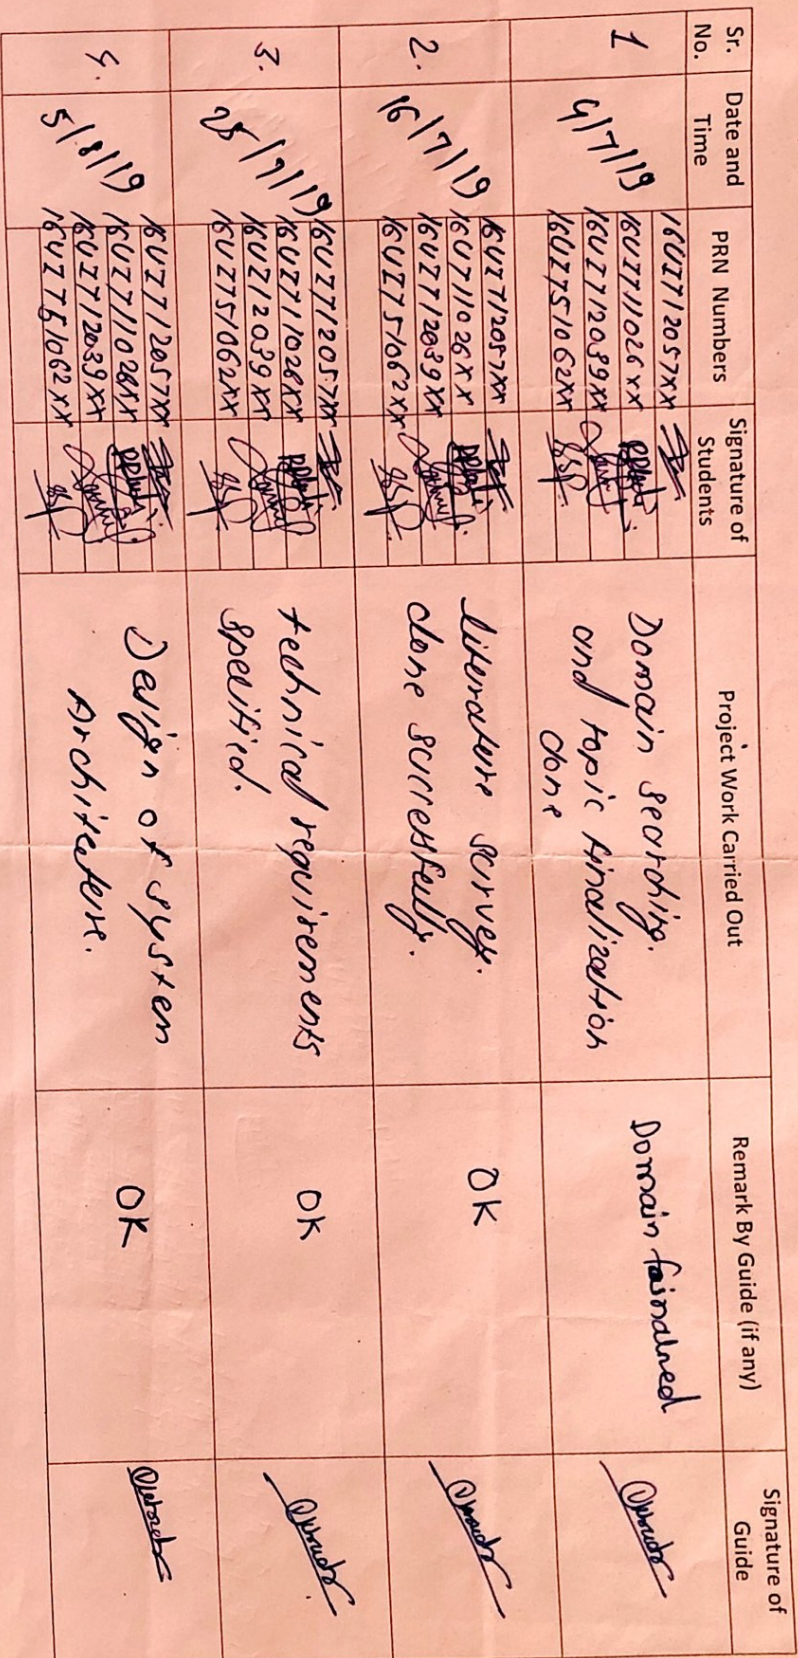 Sr. No.
Date and Time
PRN Numbers
Signature of Students
Project Work Carried Out
Remark By Guide (if any)
Signature of Guide
1
4/7/19
16UI712057XX
16UI711026XX
16UI712039XX
16UI751062XX
Domain searching.
and topic finalization
done
Domain fainalned
2.
16/7/19
16UI712057XX
16UI711026XX
16UI712039XX
16UI751062XX
literature survey.
done successfully.
OK
3.
25/7/19
16UI712057XX
16UI711026XX
16UI712039XX
16UI751062XX
technical requirements
specified.
OK
4.
5/8/19
16UI712057XX
16UI711026XX
16UI712039XX
16UI751062XX
Design of system
Architecture.
OK